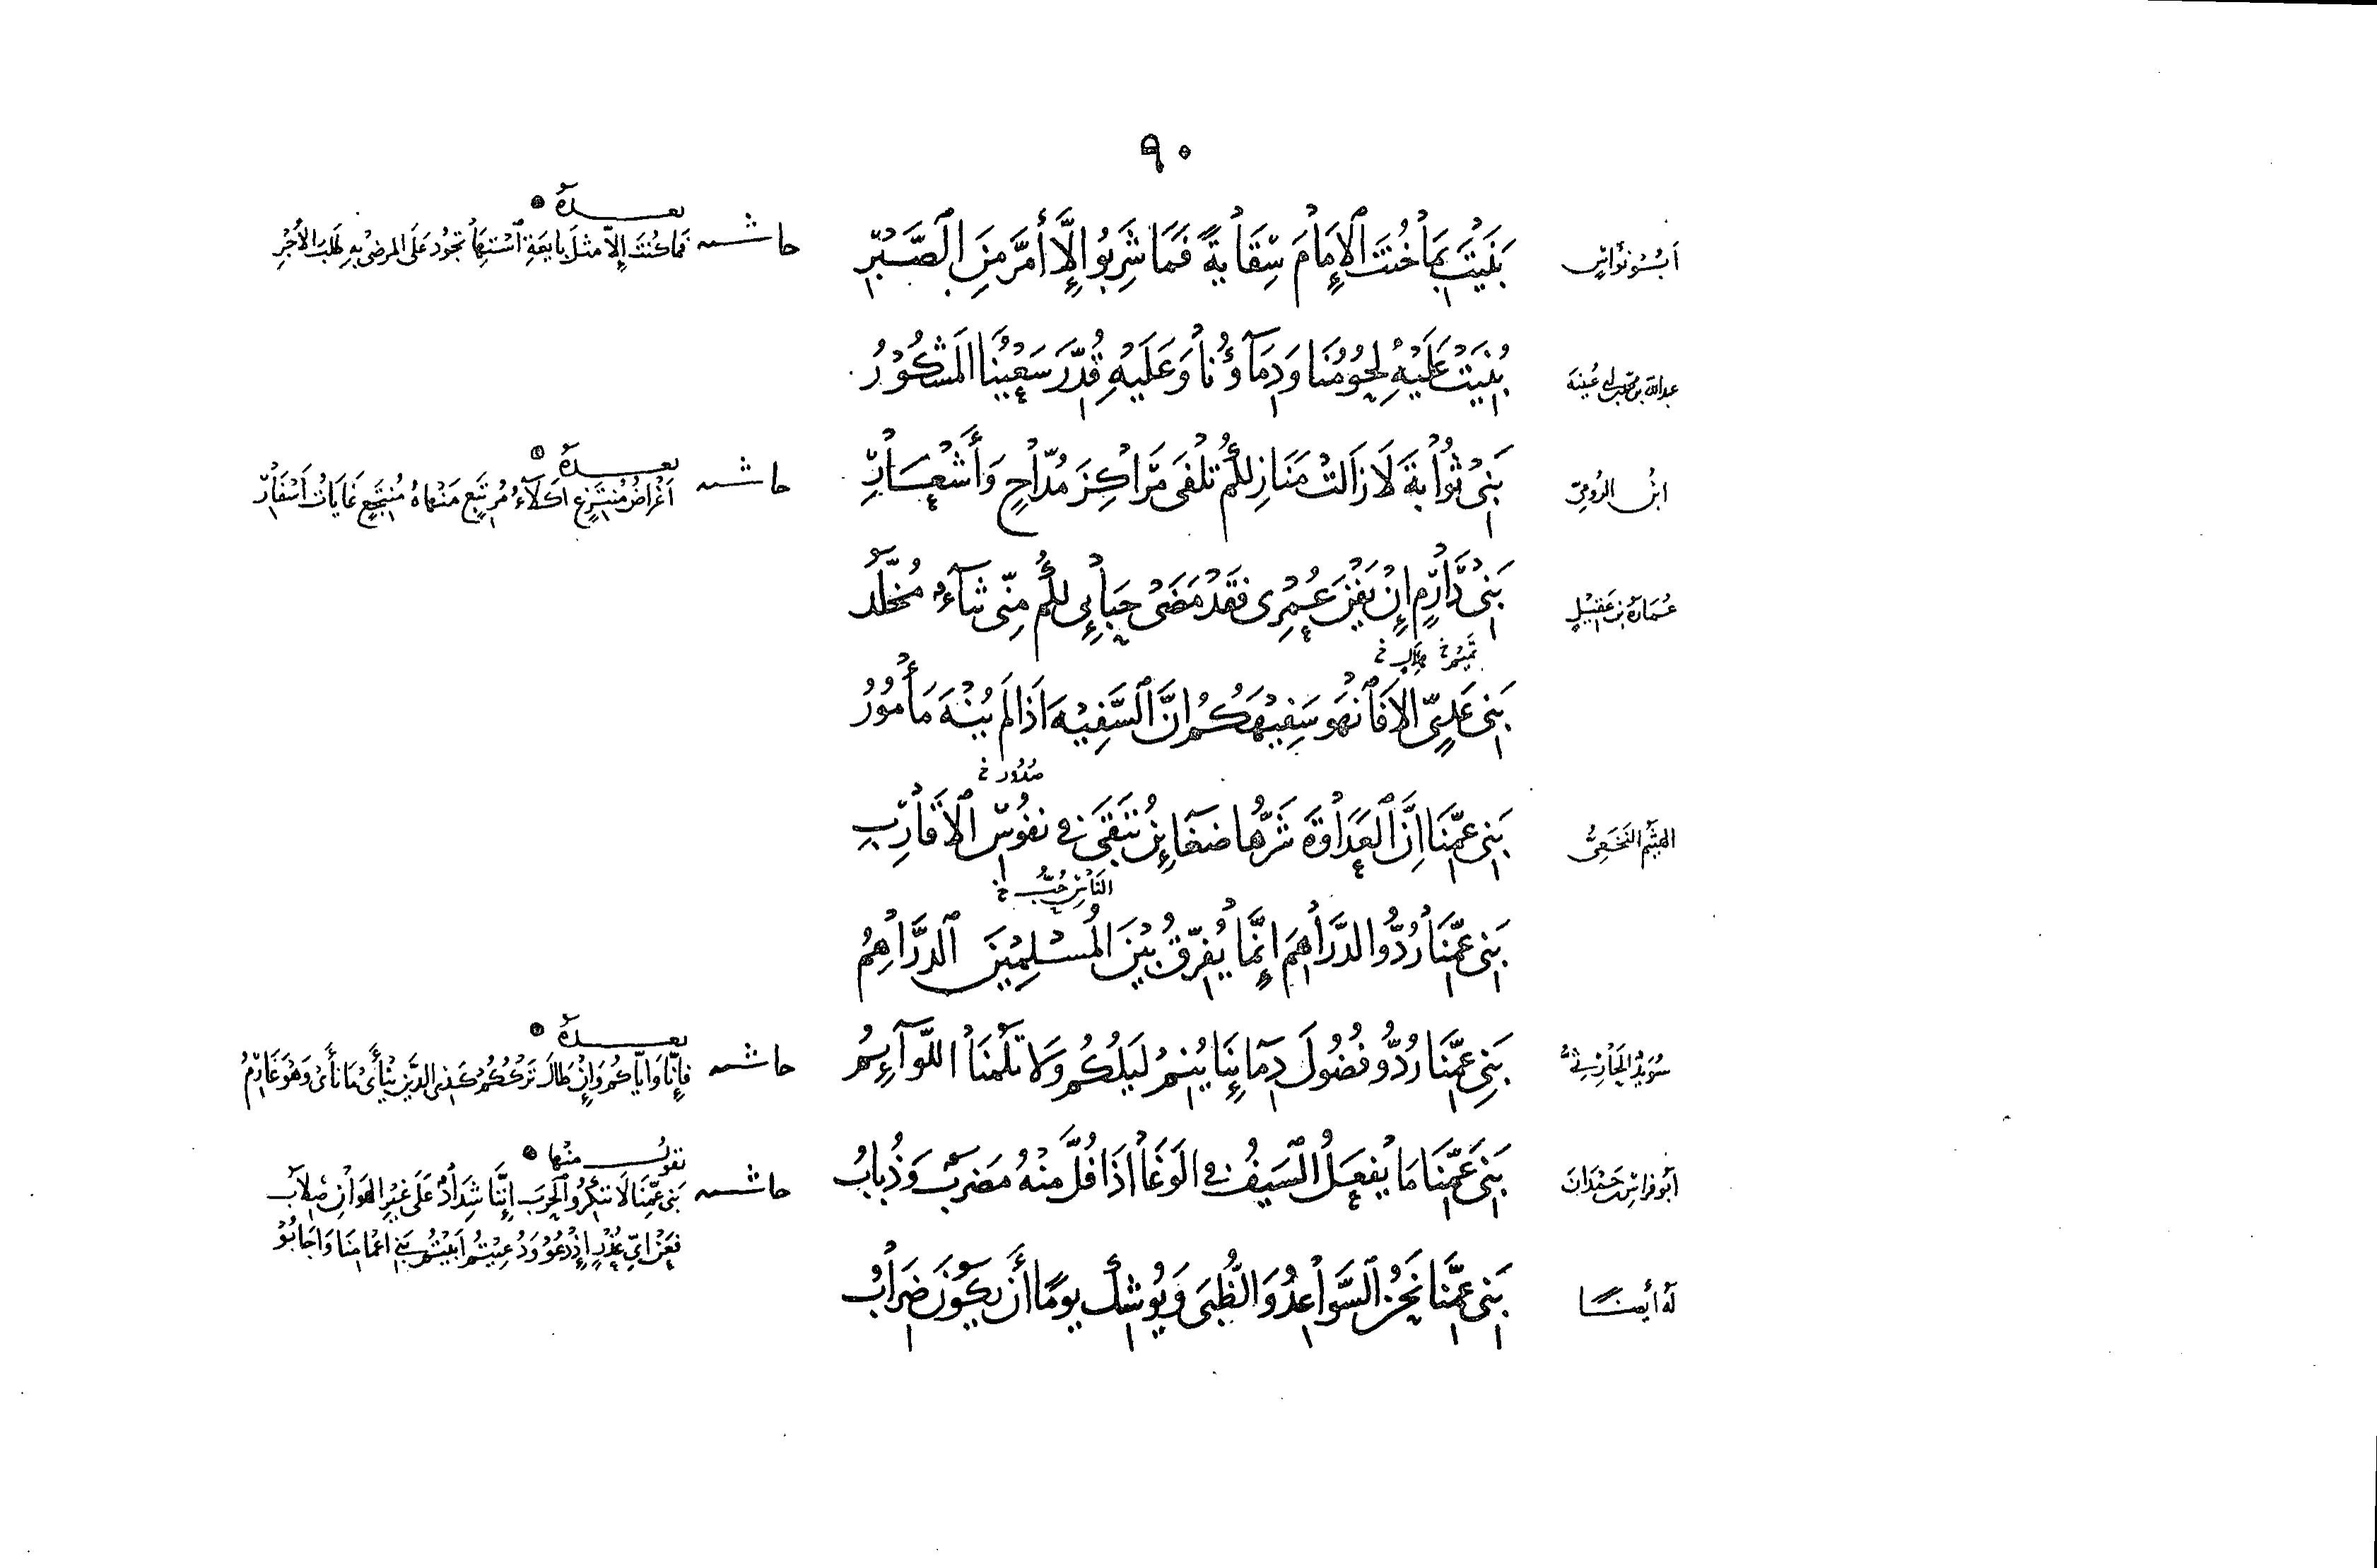 ٩٠
أَبُو نُوَاسٍ
بَنَيْتَ بِمَا خُنْتَ الْإِمَامَ سِقَايَةً فَمَا شَرِبُوا إِلَّا أَمَرَّ مِنَ الصَّبْرِ
حاشية
بعده
فَمَا كُنْتَ إِلَّا مِثْلَ بَايِعَةِ اسْتِهَا تَجُودُ عَلَى الْمَرْضَى بِهِ طَلَبَ الْأَجْرِ
عبد الله بن محمد بن أبي عيينة
بُنِيَتْ عَلَيْهِ لُحُومُنَا وَدِمَاؤُنَا وَعَلَيْهِ قُدِّرَ سَعْيُنَا الْمَشْكُورُ
ابْنُ الرُّومِيِّ
بَنِي ثُوَابَةَ لَا زَالَتْ مَنَازِلُكُمْ تُلْفَى مَرَاكِزَ مُدَّاحٍ وَأَشْعَارِ
حاشية
بعده
أَغْرَاضُ مُنْتَزِعٍ أَكْلَاءُ مُرْتَبِعٍ مَنْهَاهُ مُنْتَجِعٍ غَايَاتُ أَسْفَارِ
عُمَارَةُ بْنُ عَقِيلٍ
بَنِي دَارِمٍ إِنْ يَفْنَ عُمْرِي فَقَدْ مَضَى حَيَاتِي لَكُمْ مِنِّي ثَنَاءٌ مُخَلَّدُ
تميم خ هلال خ
بَنِي عَدِيٍّ أَلَا فَانْهَوْا سَفِيهَكُمُ إِنَّ السَّفِيهَ إِذَا لَمْ يُنْهَ مَأْمُورُ
صدور خ
الهيثم النَّخَعِيُّ
بَنِي عَمِّنَا إِنَّ الْعَدَاوَةَ شَرُّهَا ضَغَائِنُ تَبْقَى فِي نُفُوسِ الْأَقَارِبِ
الناس حب خ
بَنِي عَمِّنَا رُدُّوا الدَّرَاهِمَ إِنَّمَا يُفَرِّقُ بَيْنَ الْمُسْلِمِينَ الدَّرَاهِمُ
سُوَيْدُ الْحَارِثِيُّ
بَنِي عَمِّنَا رُدُّو فُضُولَ دِمَائِنَا يَنِمْ لَيْلُكُمْ وَلَا تَلُمْنَا اللَّوَائِمُ
حاشية
بعده
فَإِنَّا وَإِيَّاكُمْ وَإِنْ طَالَ تَرْكُكُمْ كَذِي الدَّيْنِ يَنْأَى مَا نَأَى وَهُوَ غَارِمُ
أَبُو فِرَاسِ بْنُ حَمْدَانَ
بَنِي عَمِّنَا مَا يَفْعَلُ السَّيْفُ فِي الْوَغَا إِذَا فُلَّ مِنْهُ مَضْرِبٌ وَذُبَابُ
حاشية
يقول منها
بَنِي عَمِّنَا لَا تُنْكِرُوا الْحَرْبَ إِنَّنَا شِدَادٌ عَلَى غَيْرِ الْهَوَانِ صِلَابُ
فَعَنْ أَيِّ عُذْرٍ إِذْ دُعُوا وَدُعِيتُمُ أَبَيْتُمْ بَنِي أَعْمَامِنَا وَأَجَابُوْ
لَهُ أَيْضًا
بَنِي عَمِّنَا نَحْنُ السَّوَاعِدُ وَالظُّبَى وَيُوشِكُ يَوْمًا أَنْ يَكُونَ ضِرَابُ